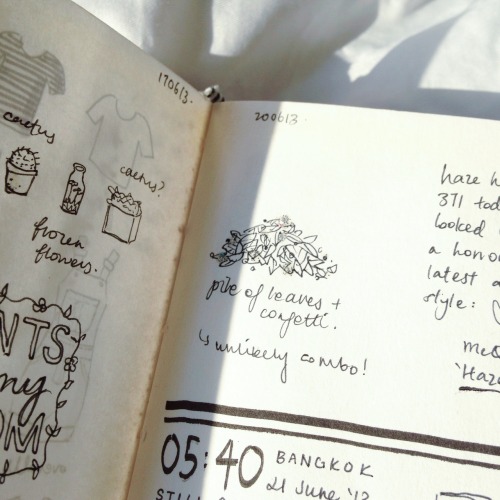 170613.
cactus
cactus?
frozen
flowers.
NTS
my
OM
200613.
pile of leaves +
confetti.
↳ unlikely combo!
haze h
3T1 tod
looked
a horro
latest a
style:
'Haze
05:40 BANGKOK
21 June '13